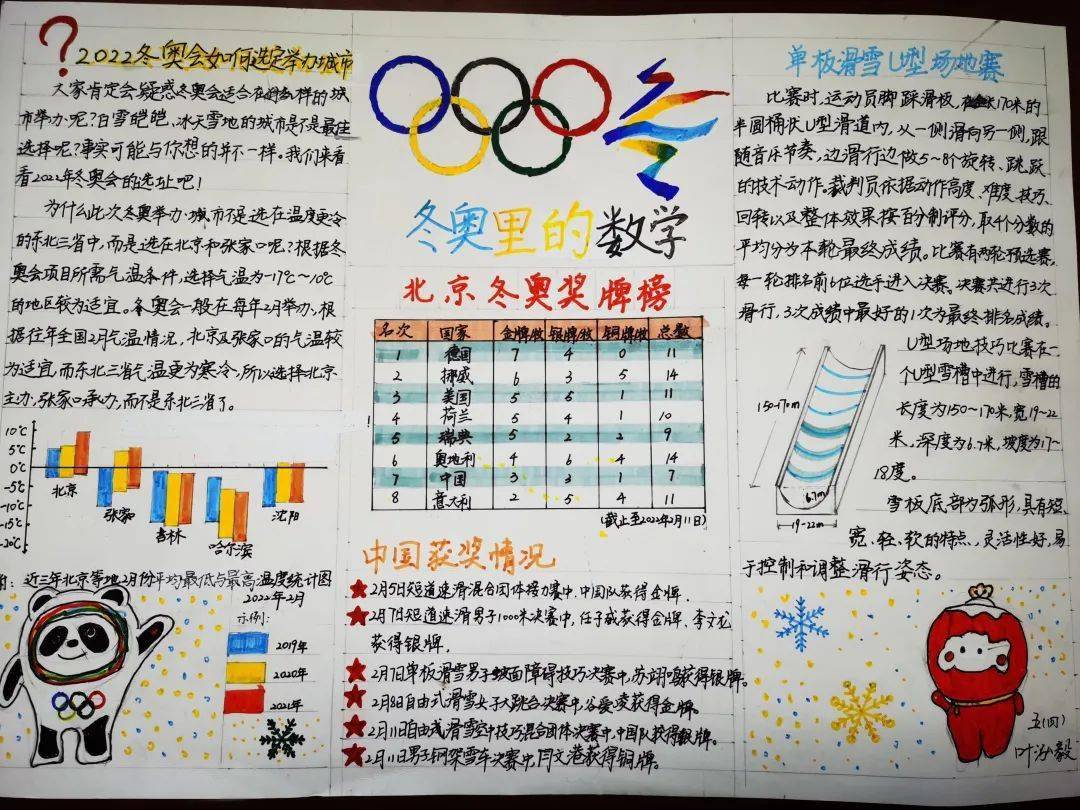 ?
2022冬奥会如何选定举办城市
大家肯定会疑惑冬奥会适合在什么样的城
市举办呢?白雪皑皑、冰天雪地的城市是不是最佳
选择呢?事实可能与你想的并不一样。我们来看
看2022年冬奥会的选址吧!
为什么此次冬奥举办城市不是选在温度更冷
的东北三省中,而是选在北京和张家口呢?根据冬
奥会项目所需气温条件,选择气温为-17℃~10℃
的地区较为适宜。冬奥会一般在每年2月举办,根
据往年全国2月气温情况,北京及张家口的气温较
为适宜,而东北三省气温更为寒冷,所以选择北京
主办,张家口承办,而不是东北三省了。
10℃
5℃
0℃
-5℃
-10℃
-15℃
-20℃
北京
张家口
吉林
哈尔滨
沈阳
近三年北京等地2月份平均最低与最高温度统计图
2022年2月
示例:
2019年
2020年
2021年
冬奥里的数学
北京冬奥奖牌榜
名次 国家 金牌数 银牌数 铜牌数 总数
1 德国 7 4 0 11
2 挪威 6 3 5 14
3 美国 5 5 1 11
4 荷兰 5 4 1 10
5 瑞典 5 2 2 9
6 奥地利 4 6 4 14
7 中国 3 3 1 7
8 意大利 2 5 4 11
(截止至2022年2月11日)
中国获奖情况
2月5日短道速滑混合团体接力赛中,中国队获得金牌.
2月7日短道速滑男子1000米决赛中,任子威获得金牌.李文龙
获得银牌.
2月7日单板滑雪男子坡面障碍技巧决赛中,苏翊鸣获得银牌。
2月8日自由式滑雪女子大跳台决赛中,谷爱凌获得金牌.
2月11日自由式滑雪空中技巧混合团体决赛中,中国队获得银牌。
2月11日男子钢架雪车决赛中,闫文港获得铜牌。
单板滑雪U型场地赛
比赛时,运动员脚踩滑板,在170米的
半圆桶状U型滑道内,从一侧滑向另一侧,跟
随音乐节奏,边滑行边做5~8个旋转、跳跃
的技术动作。裁判员依据动作高度、难度、技巧、
回转以及整体效果按百分制评分,取4个分数的
平均分为本轮最终成绩。比赛有两轮预选赛,
每一轮排名前6位选手进入决赛。决赛共进行3次
滑行,3次成绩中最好的1次为最终排名成绩。
U型场地技巧比赛在一
个U型雪槽中进行,雪槽的
长度为150~170米,宽19~22
米,深度为6.7米,坡度为17~
18度。
150~170m
6.7m
19~22m
雪板底部为弧形,具有短、
宽、轻、软的特点,灵活性好,易
于控制和调整滑行姿态。
五(四)